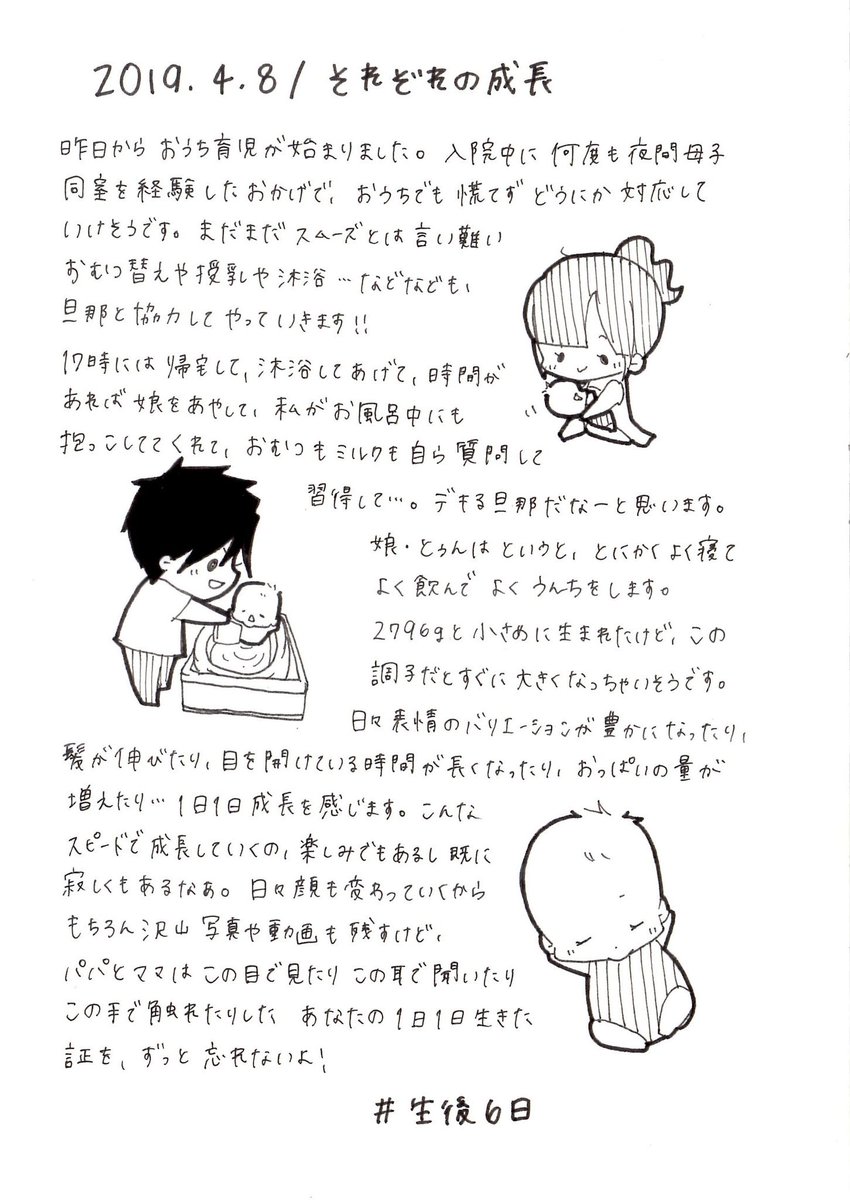 2019.4.8/それぞれの成長
昨日から おうち育児が始まりました。入院中に 何度も夜間母子
同室を経験したおかげで、おうちでも慌てず どうにか 対応して
いけそうです。まだまだ スムーズとは言い難い
おむつ替えや授乳や沐浴…などなども、
旦那と協力して やっていきます!!
17時には 帰宅して、沐浴してあげて、時間が
あれば娘をあやして、私がお風呂中にも
抱っこしててくれて、おむつもミルクも自ら質問して
習得して…。デキる旦那だなーと思います。
娘・とぅんは というと、とにかくよく寝て
よく飲んで よくうんちをします。
2796gと小さめに生まれたけど、この
調子だとすぐに大きくなっちゃいそうです。
日々表情のバリエーションが豊かになったり、
髪が伸びたり、目を開けている時間が長くなったり、おっぱいの量が
増えたり…1日1日成長を感じます。こんな
スピードで成長していくの、楽しみでもあるし既に
寂しくもあるなぁ。日々顔も変わっていくから
もちろん沢山 写真や動画も残すけど、
パパとママは この目で見たり この耳で聞いたり
この手で触れたりした あなたの1日1日生きた
証を、ずっと 忘れないよ!
#生後6日